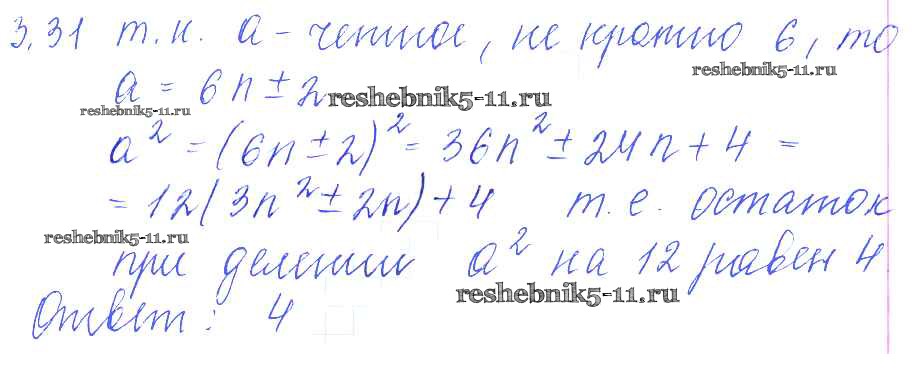 3.31 т.к. а - четное, не кратно 6, то
reshebnik5-11.ru
а = 6n ± 2
reshebnik5-11.ru
reshebnik5-11.ru
a² = (6n ± 2)² = 36n² ± 24n + 4 =
= 12(3n² ± 2n) + 4 т.е. остаток
reshebnik5-11.ru
при делении а² на 12 равен 4
reshebnik5-11.ru
Ответ: 4